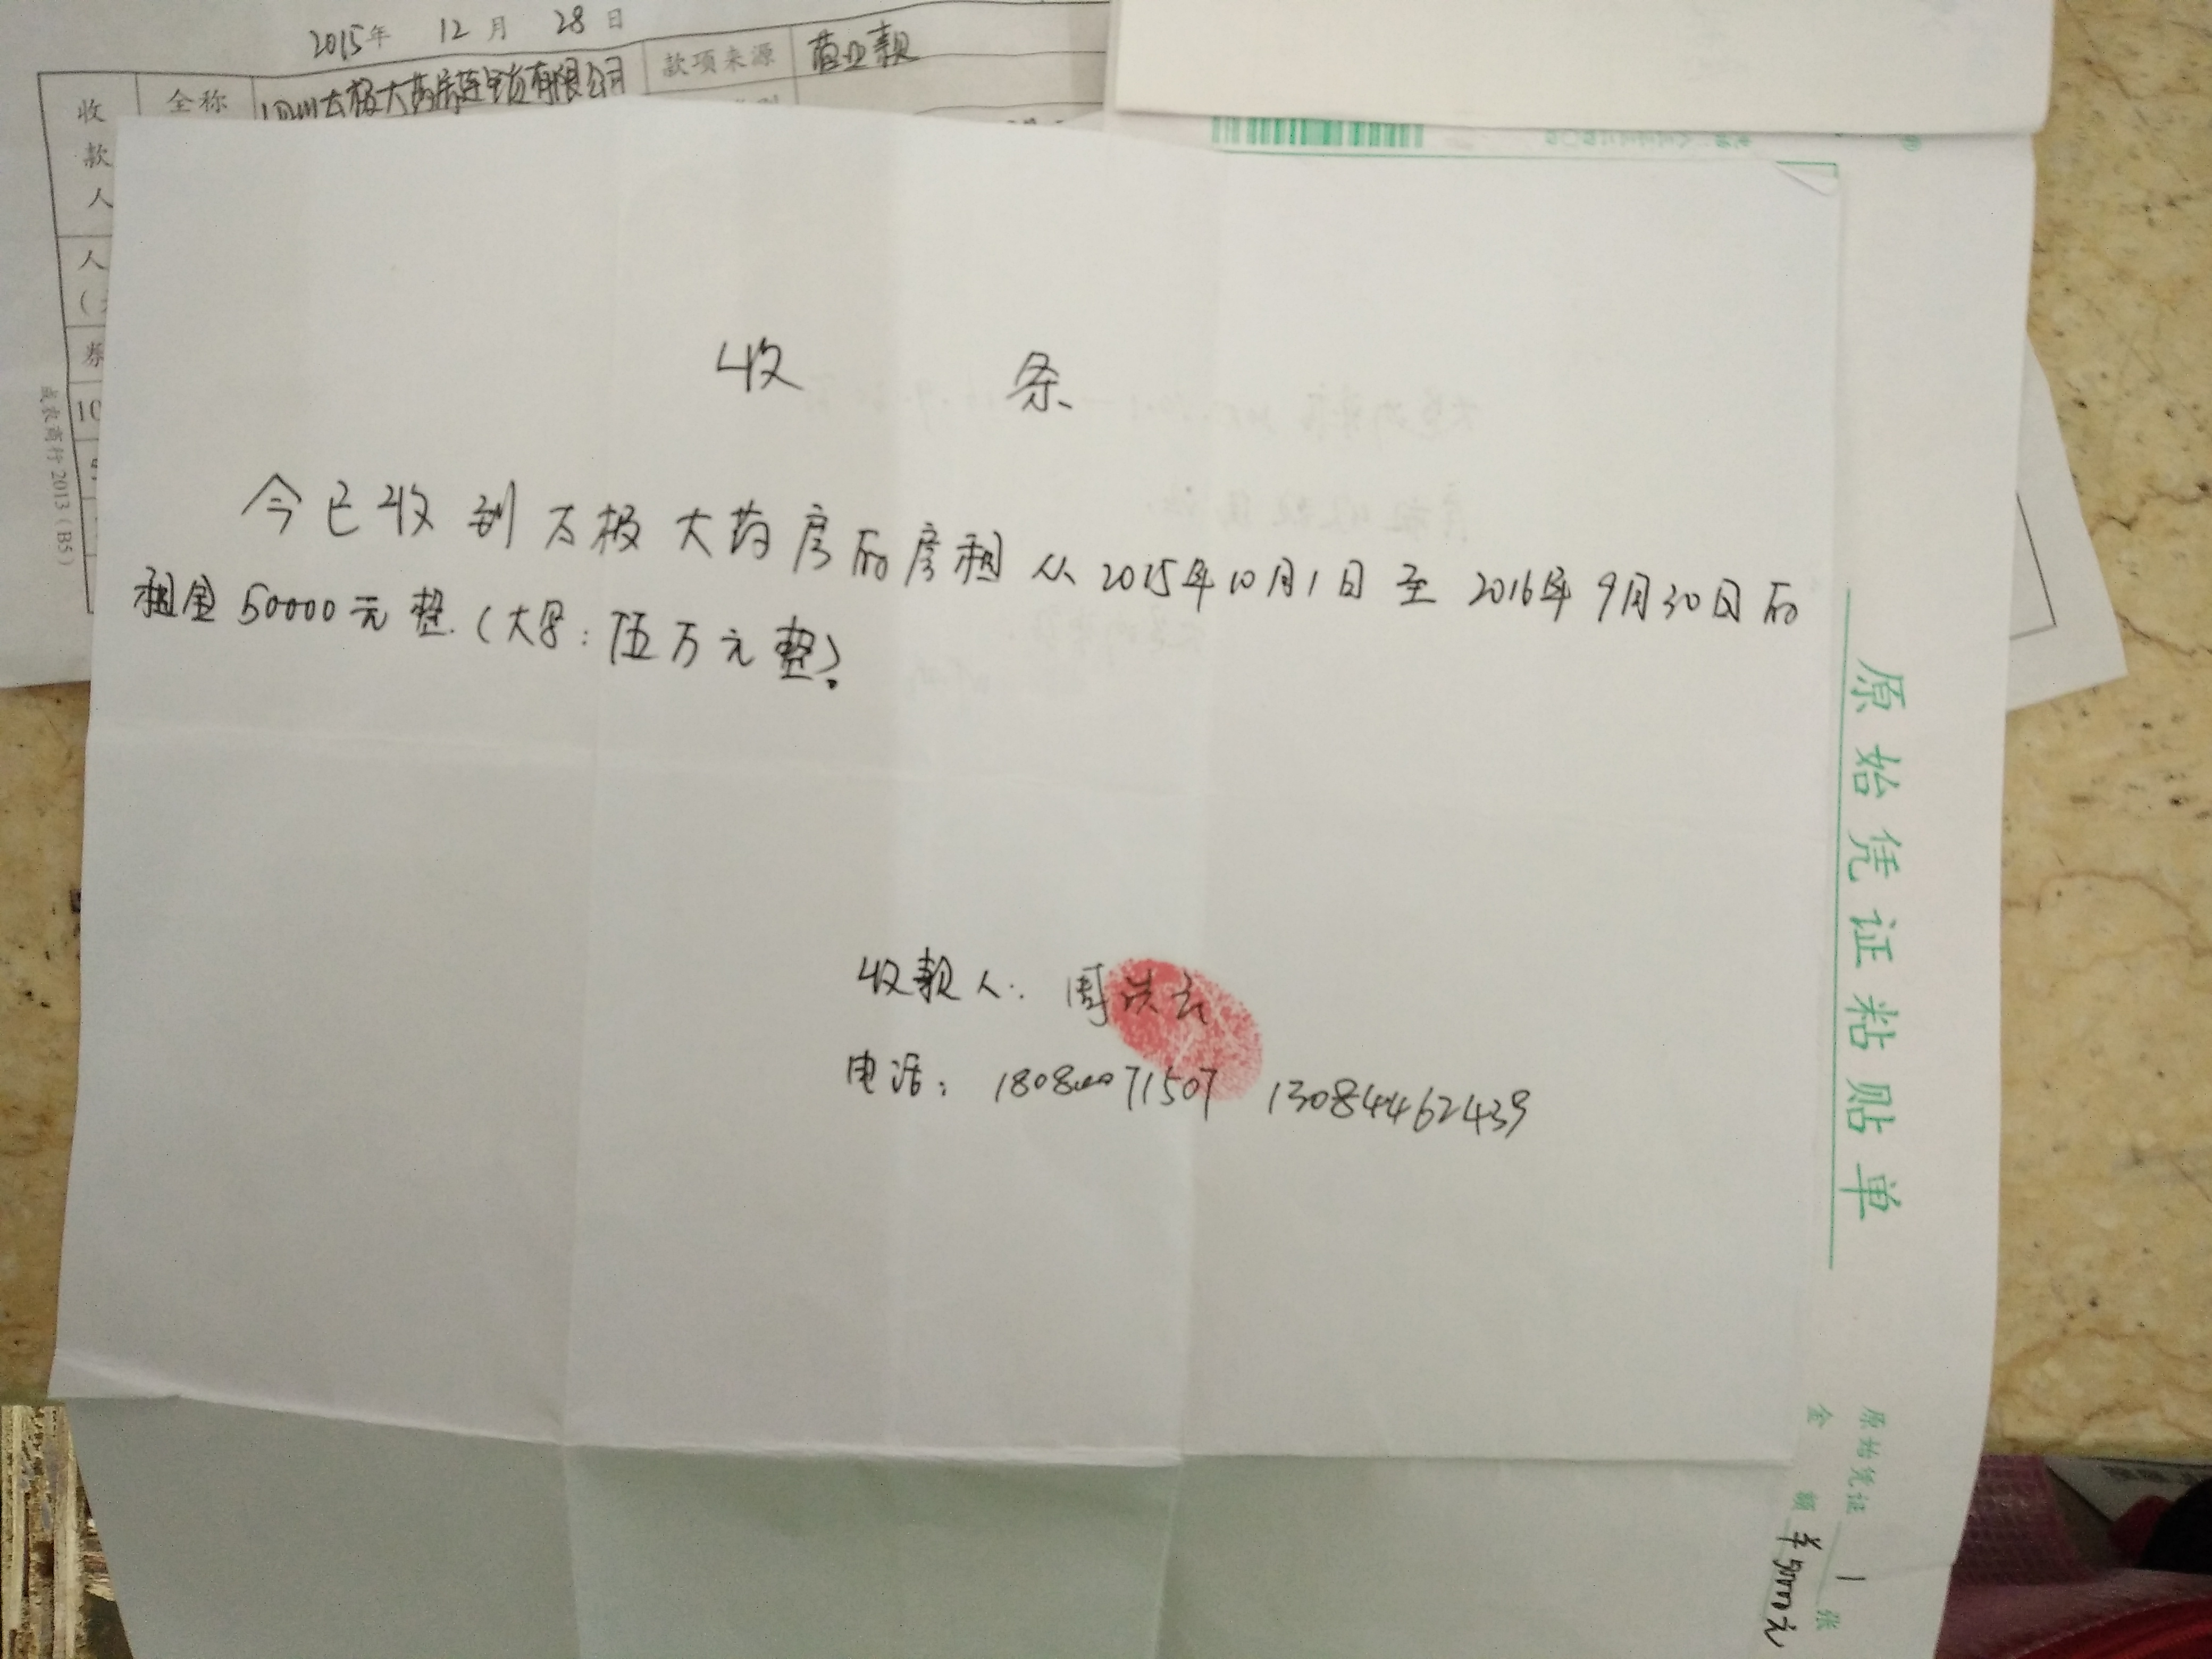 2015年 12月 28日
收款人 全称 四川太极大药房连锁有限公司 款项来源 营业款
人
10
成农商行2013(B5)
收 条
今已收到太极大药房的房租从2015年10月1日至2016年9月30日的
租金50000元整(大写:伍万元整)。
收款人: 周洪云
电话: 13084462439
原始凭证粘贴单
原始凭证 1 张
金额 ¥50000元